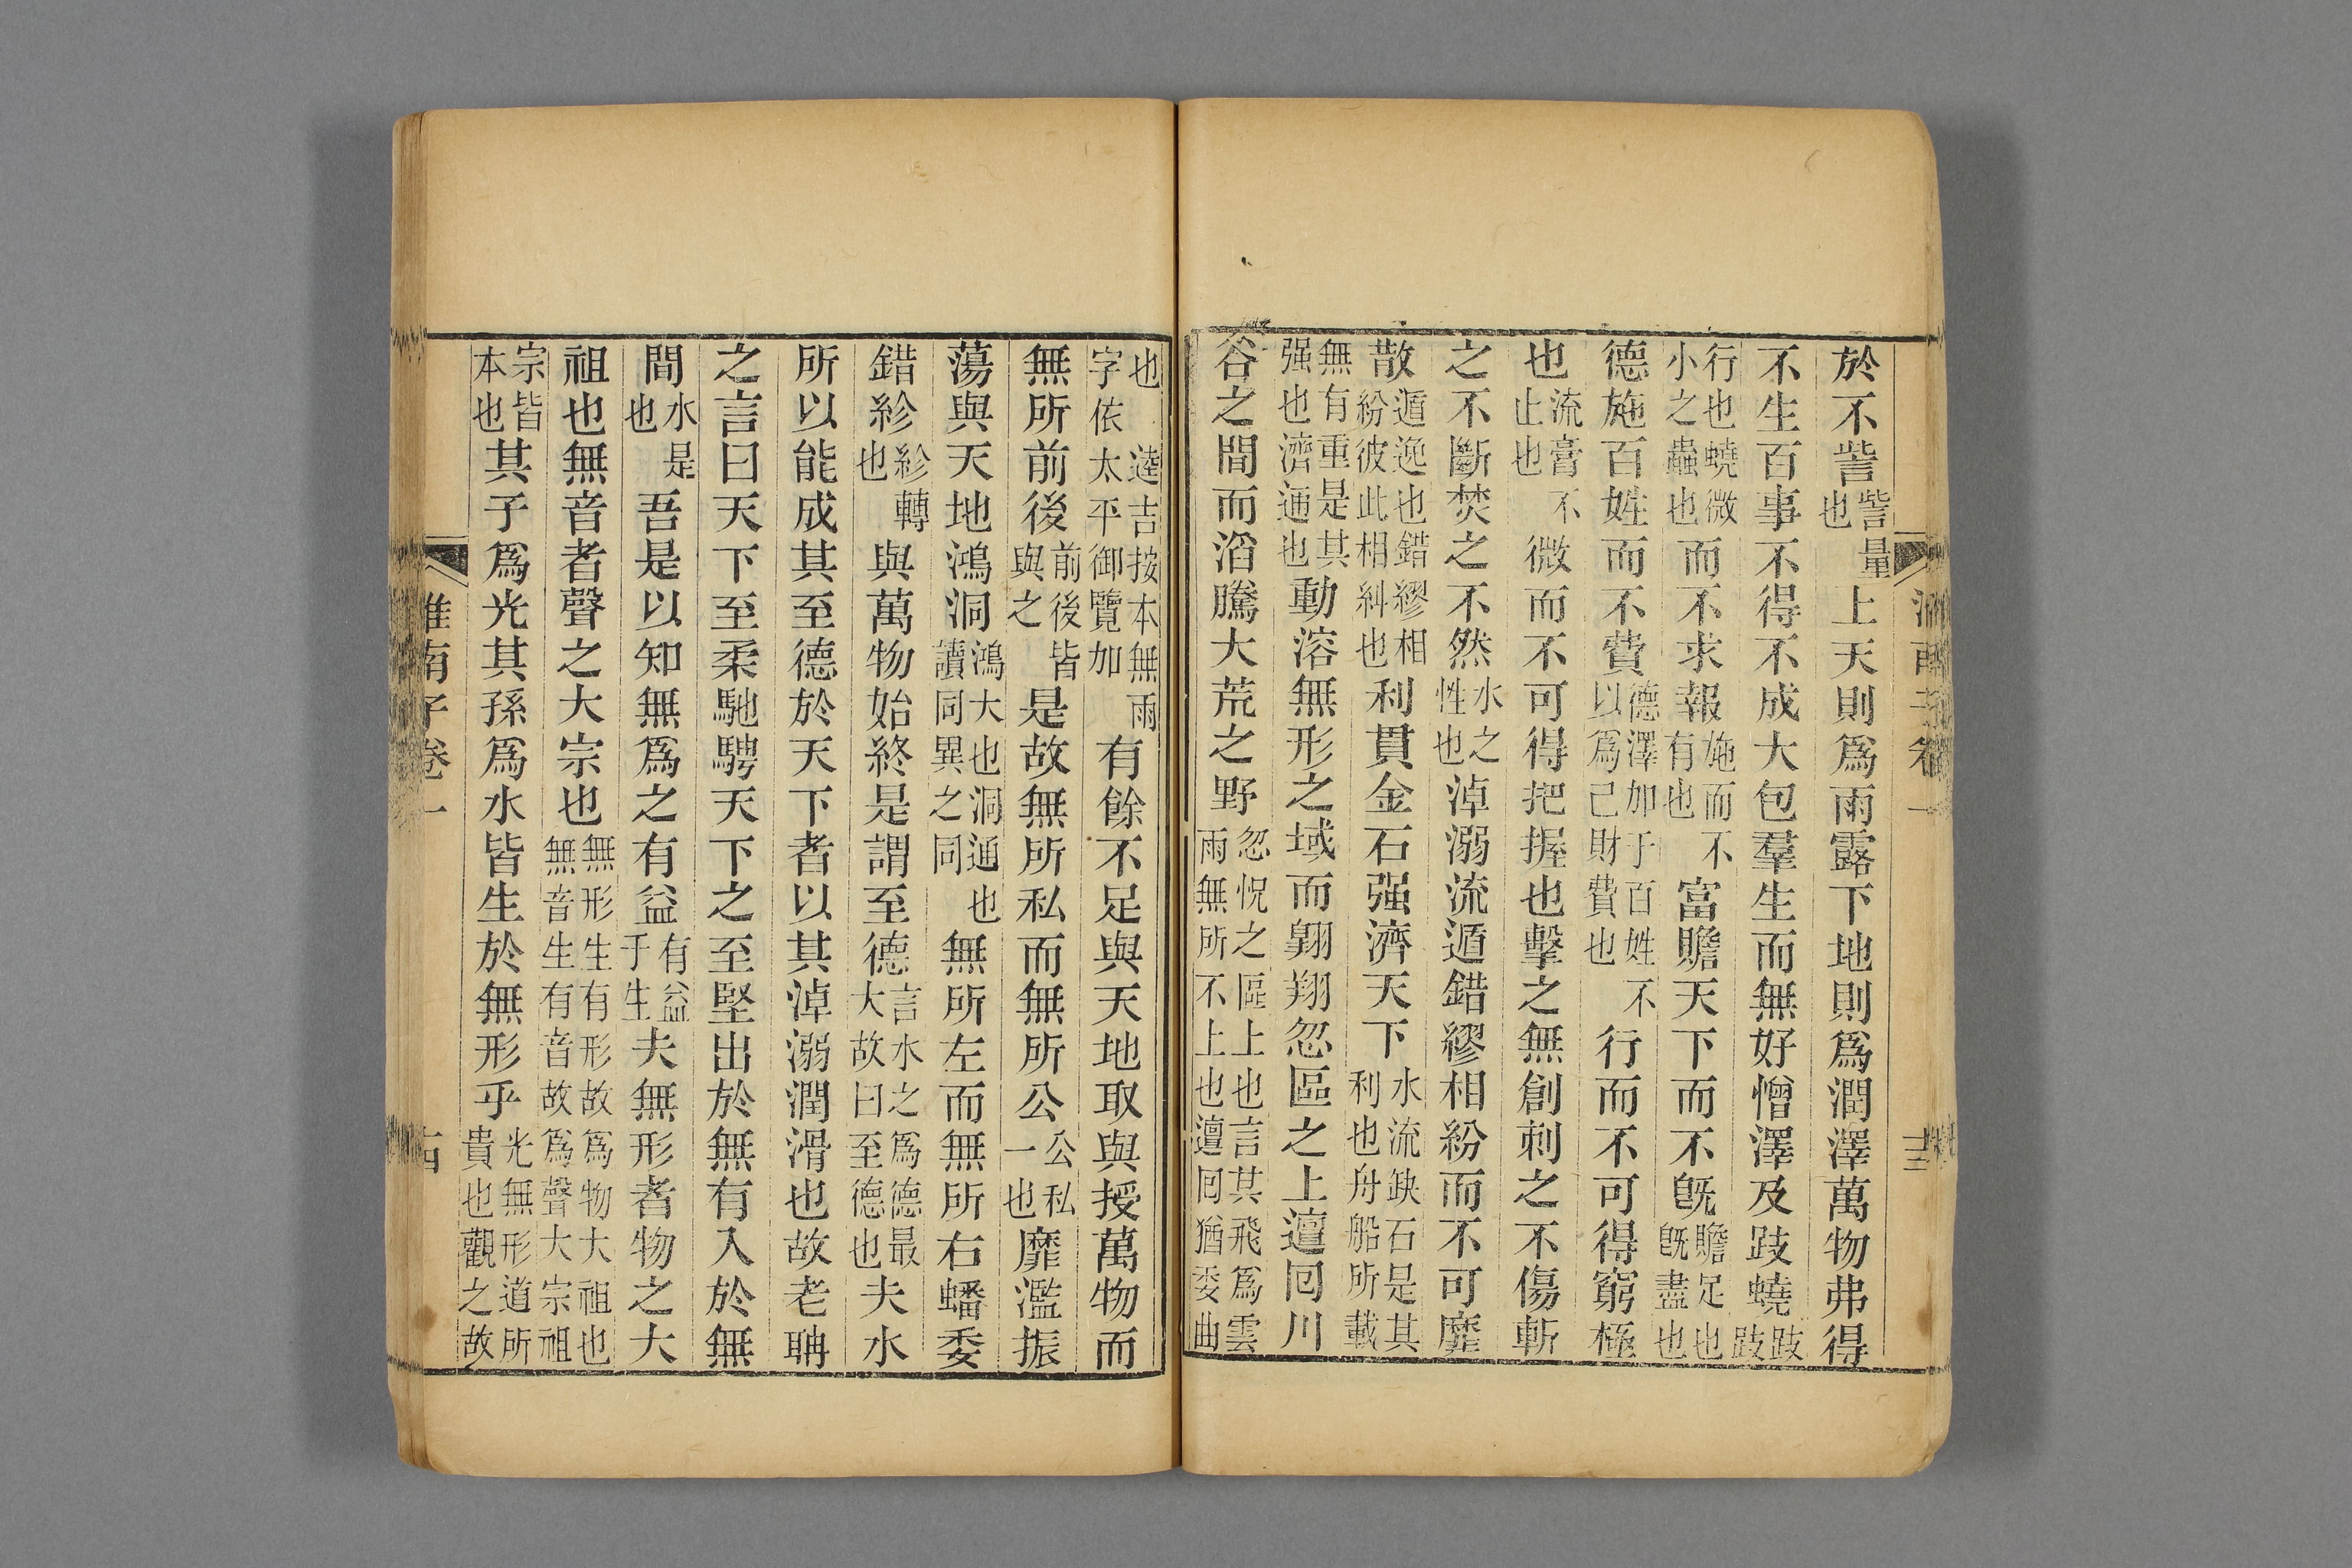 淮南子卷一
十三
於不訾訾量也上天則爲雨露下地則爲潤澤萬物弗得
不生百事不得不成大包羣生而無好憎澤及跂蟯跂跂
行也蟯微小之蟲也而不求報施而不有也富贍天下而不旣贍足也旣盡也
德施百姓而不費德澤加于百姓不以爲己財費也行而不可得窮極
也流膏不止也微而不可得把握也擊之無創刺之不傷斬
之不斷焚之不然水之性也淖溺流遁錯繆相紛而不可靡
散遁逸也錯繆相紛彼此相糾也利貫金石强濟天下水流缺石是其利也舟船所載
無有重是其强也濟通也動溶無形之域而翱翔忽區之上邅回川
谷之間而滔騰大荒之野忽怳之區上也言其飛爲雲雨無所不上也邅回猶委曲
也逵吉按本無雨字依太平御覽加有餘不足與天地取與授萬物而
無所前後前後皆與之是故無所私而無所公公私一也靡濫振
蕩與天地鴻洞鴻大也洞通也讀同異之同無所左而無所右蟠委
錯紾紾轉也與萬物始終是謂至德言水之爲德最大故曰至德也夫水
所以能成其至德於天下者以其淖溺潤滑也故老聃
之言曰天下至柔馳騁天下之至堅出於無有入於無
間水是也吾是以知無爲之有益有益于生夫無形者物之大
祖也無音者聲之大宗也無形生有形故爲物大祖也無音生有音故爲聲大宗祖
宗皆本也其子爲光其孫爲水皆生於無形乎光無形道所貴也觀之故
淮南子卷一
十四